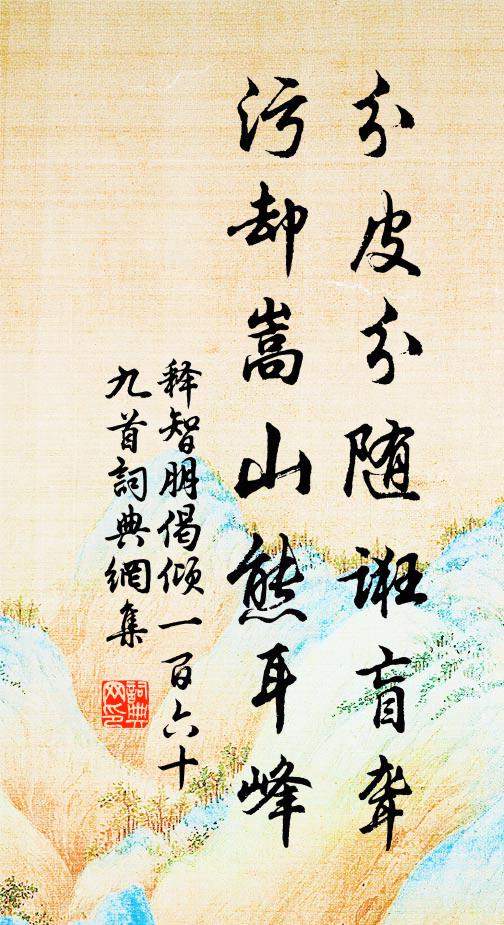 分皮分随诳盲聋
污却嵩山熊耳峰
释智朋偈倾一百六十
九首詞典網集
詞典
网印